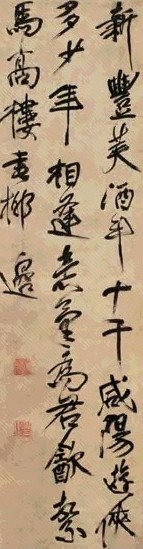 新豐美酒斗十千咸陽遊俠
多少年相逢意氣為君飲繫
馬高樓垂柳邊